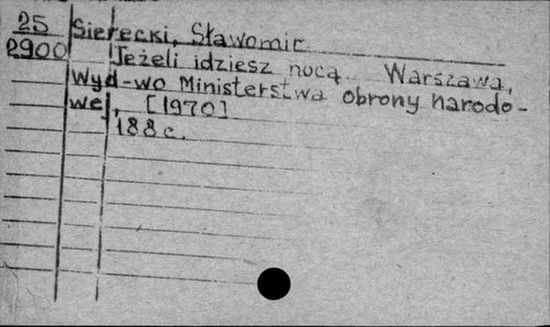 25 Sierecki, Sławomir
2900 Jeżeli idziesz nocą. Warszawa,
Wyd-wo Ministerstwa obrony narodo-
wej, [1970]
188 c.